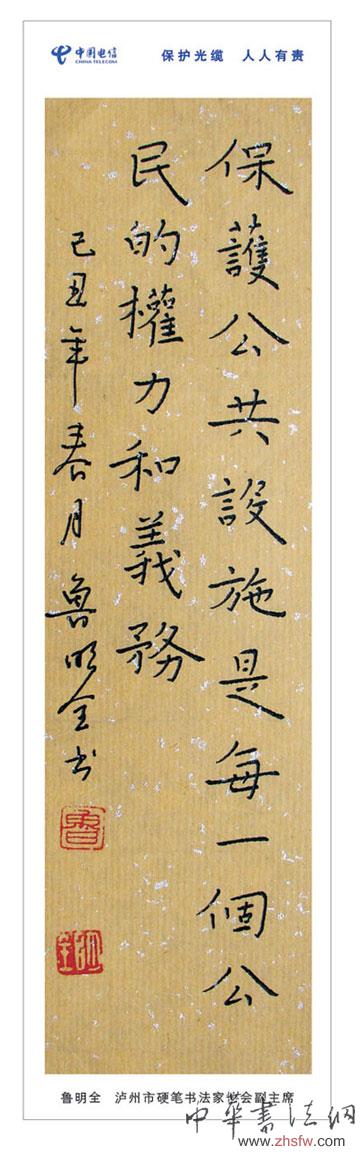 中国电信
CHINA TELECOM
保护光缆 人人有责
保護公共設施是每一個公
民的權力和義務
己丑年春月魯明全书
魯
明全
鲁明全 泸州市硬笔书法家协会副主席
中華書法網
www.zhsfw.com